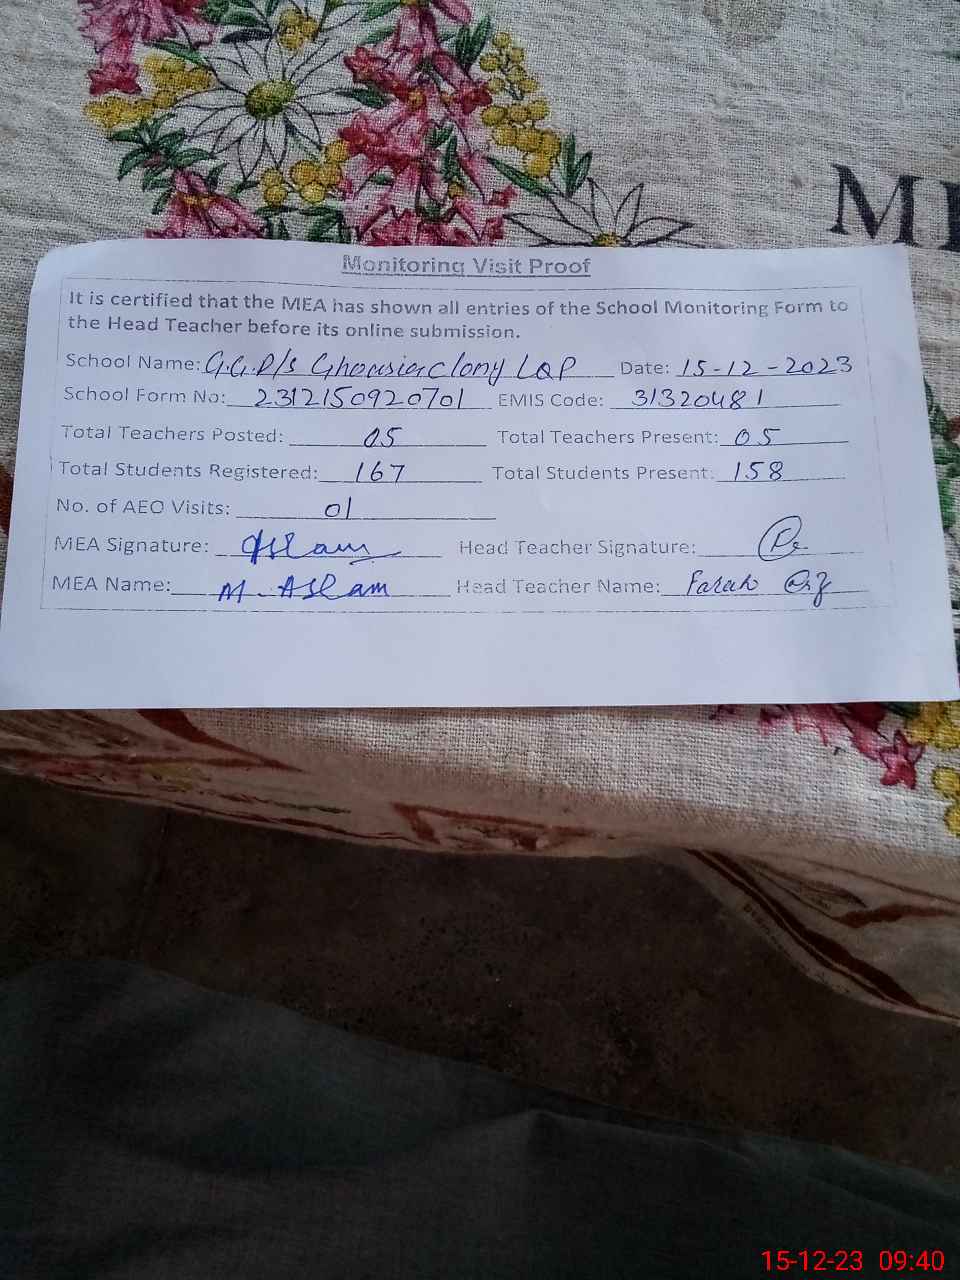 ME
Monitoring Visit Proof
It is certified that the MEA has shown all entries of the School Monitoring Form to
the Head Teacher before its online submission.
School Name: G.G.P/s Ghousia Clony LQP Date: 15-12-2023
School Form No: 2312150920701 EMIS Code: 31320481
Total Teachers Posted: 05 Total Teachers Present: 05
Total Students Registered: 167 Total Students Present: 158
No. of AEO Visits: 01
MEA Signature: Aslam Head Teacher Signature:
MEA Name: M. Aslam Head Teacher Name: Farah
15-12-23 09:40